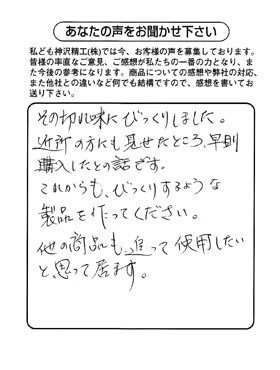 あなたの声をお聞かせ下さい
私ども神沢精工(株)では今、お客様の声を募集しております。
皆様の率直なご意見、ご感想が私たちの一番の力となり、ま
た今後の参考になります。商品についての感想や弊社の対応、
また他社との違いなど何でも結構ですので、感想を書いてお
送り下さい。
その切れ味にびっくりしました。
近所の方にも見せたところ、早則
購入したとの話です。
これからも、びっくりするような
製品を作ってください。
他の商品も、進って使用したい
と、思って居ます。